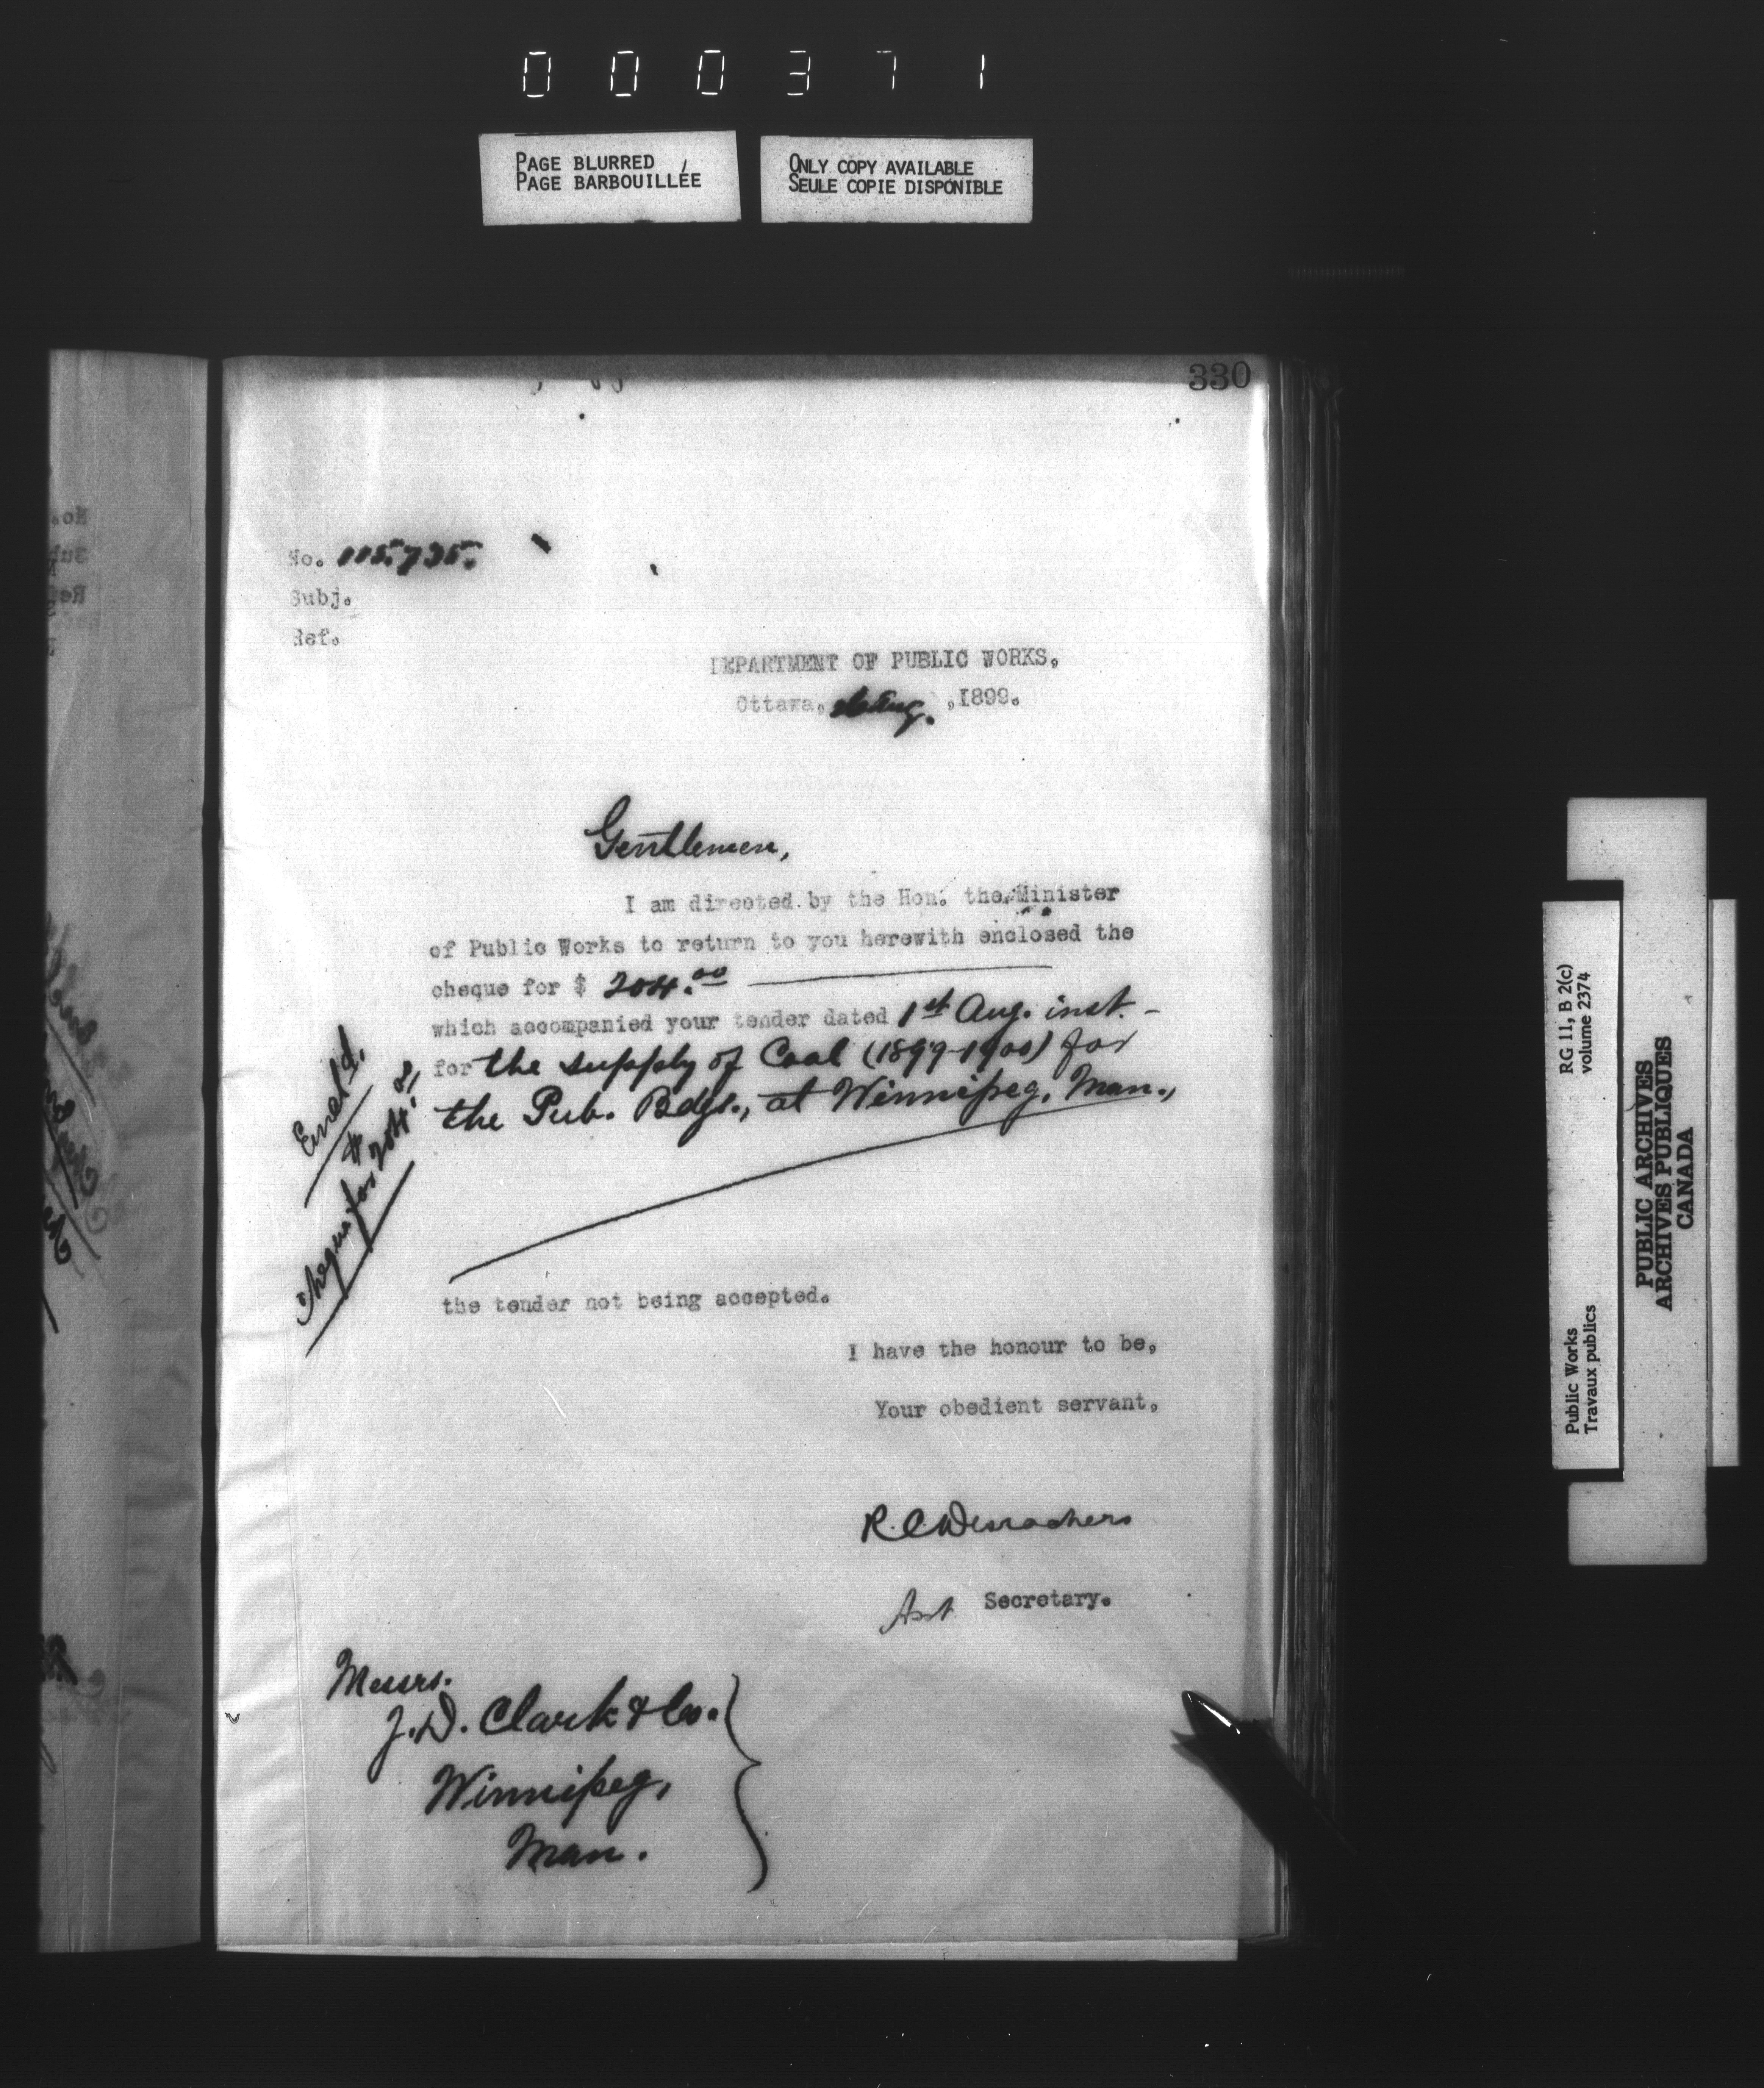 000371
PAGE BLURRED
PAGE BARBOUILLÉE
ONLY COPY AVAILABLE
SEULE COPIE DISPONIBLE
330
No. 115,735.
Subj.
Ref.
DEPARTMENT OF PUBLIC WORKS.
Ottawa, Aug. ,1899.
Gentlemen,
I am directed by the Hon. the Minister
of Public Works to return to you herewith enclosed the
cheque for $ 204.00
which accompanied your tender dated 1st Aug. inst. -
for the supply of Coal (1899-1900) for
the Pub. Bdgs., at Winnipeg, Man.,
Encl'd.
Cheque for $204.
the tender not being accepted.
I have the honour to be,
Your obedient servant,
R.C. Desrochers
Asst Secretary.
Messrs.
J.D. Clark & Co.
Winnipeg,
Man.
RG 11, B 2(c)
volume 2374
Public Works
Travaux publics
PUBLIC ARCHIVES
ARCHIVES PUBLIQUES
CANADA